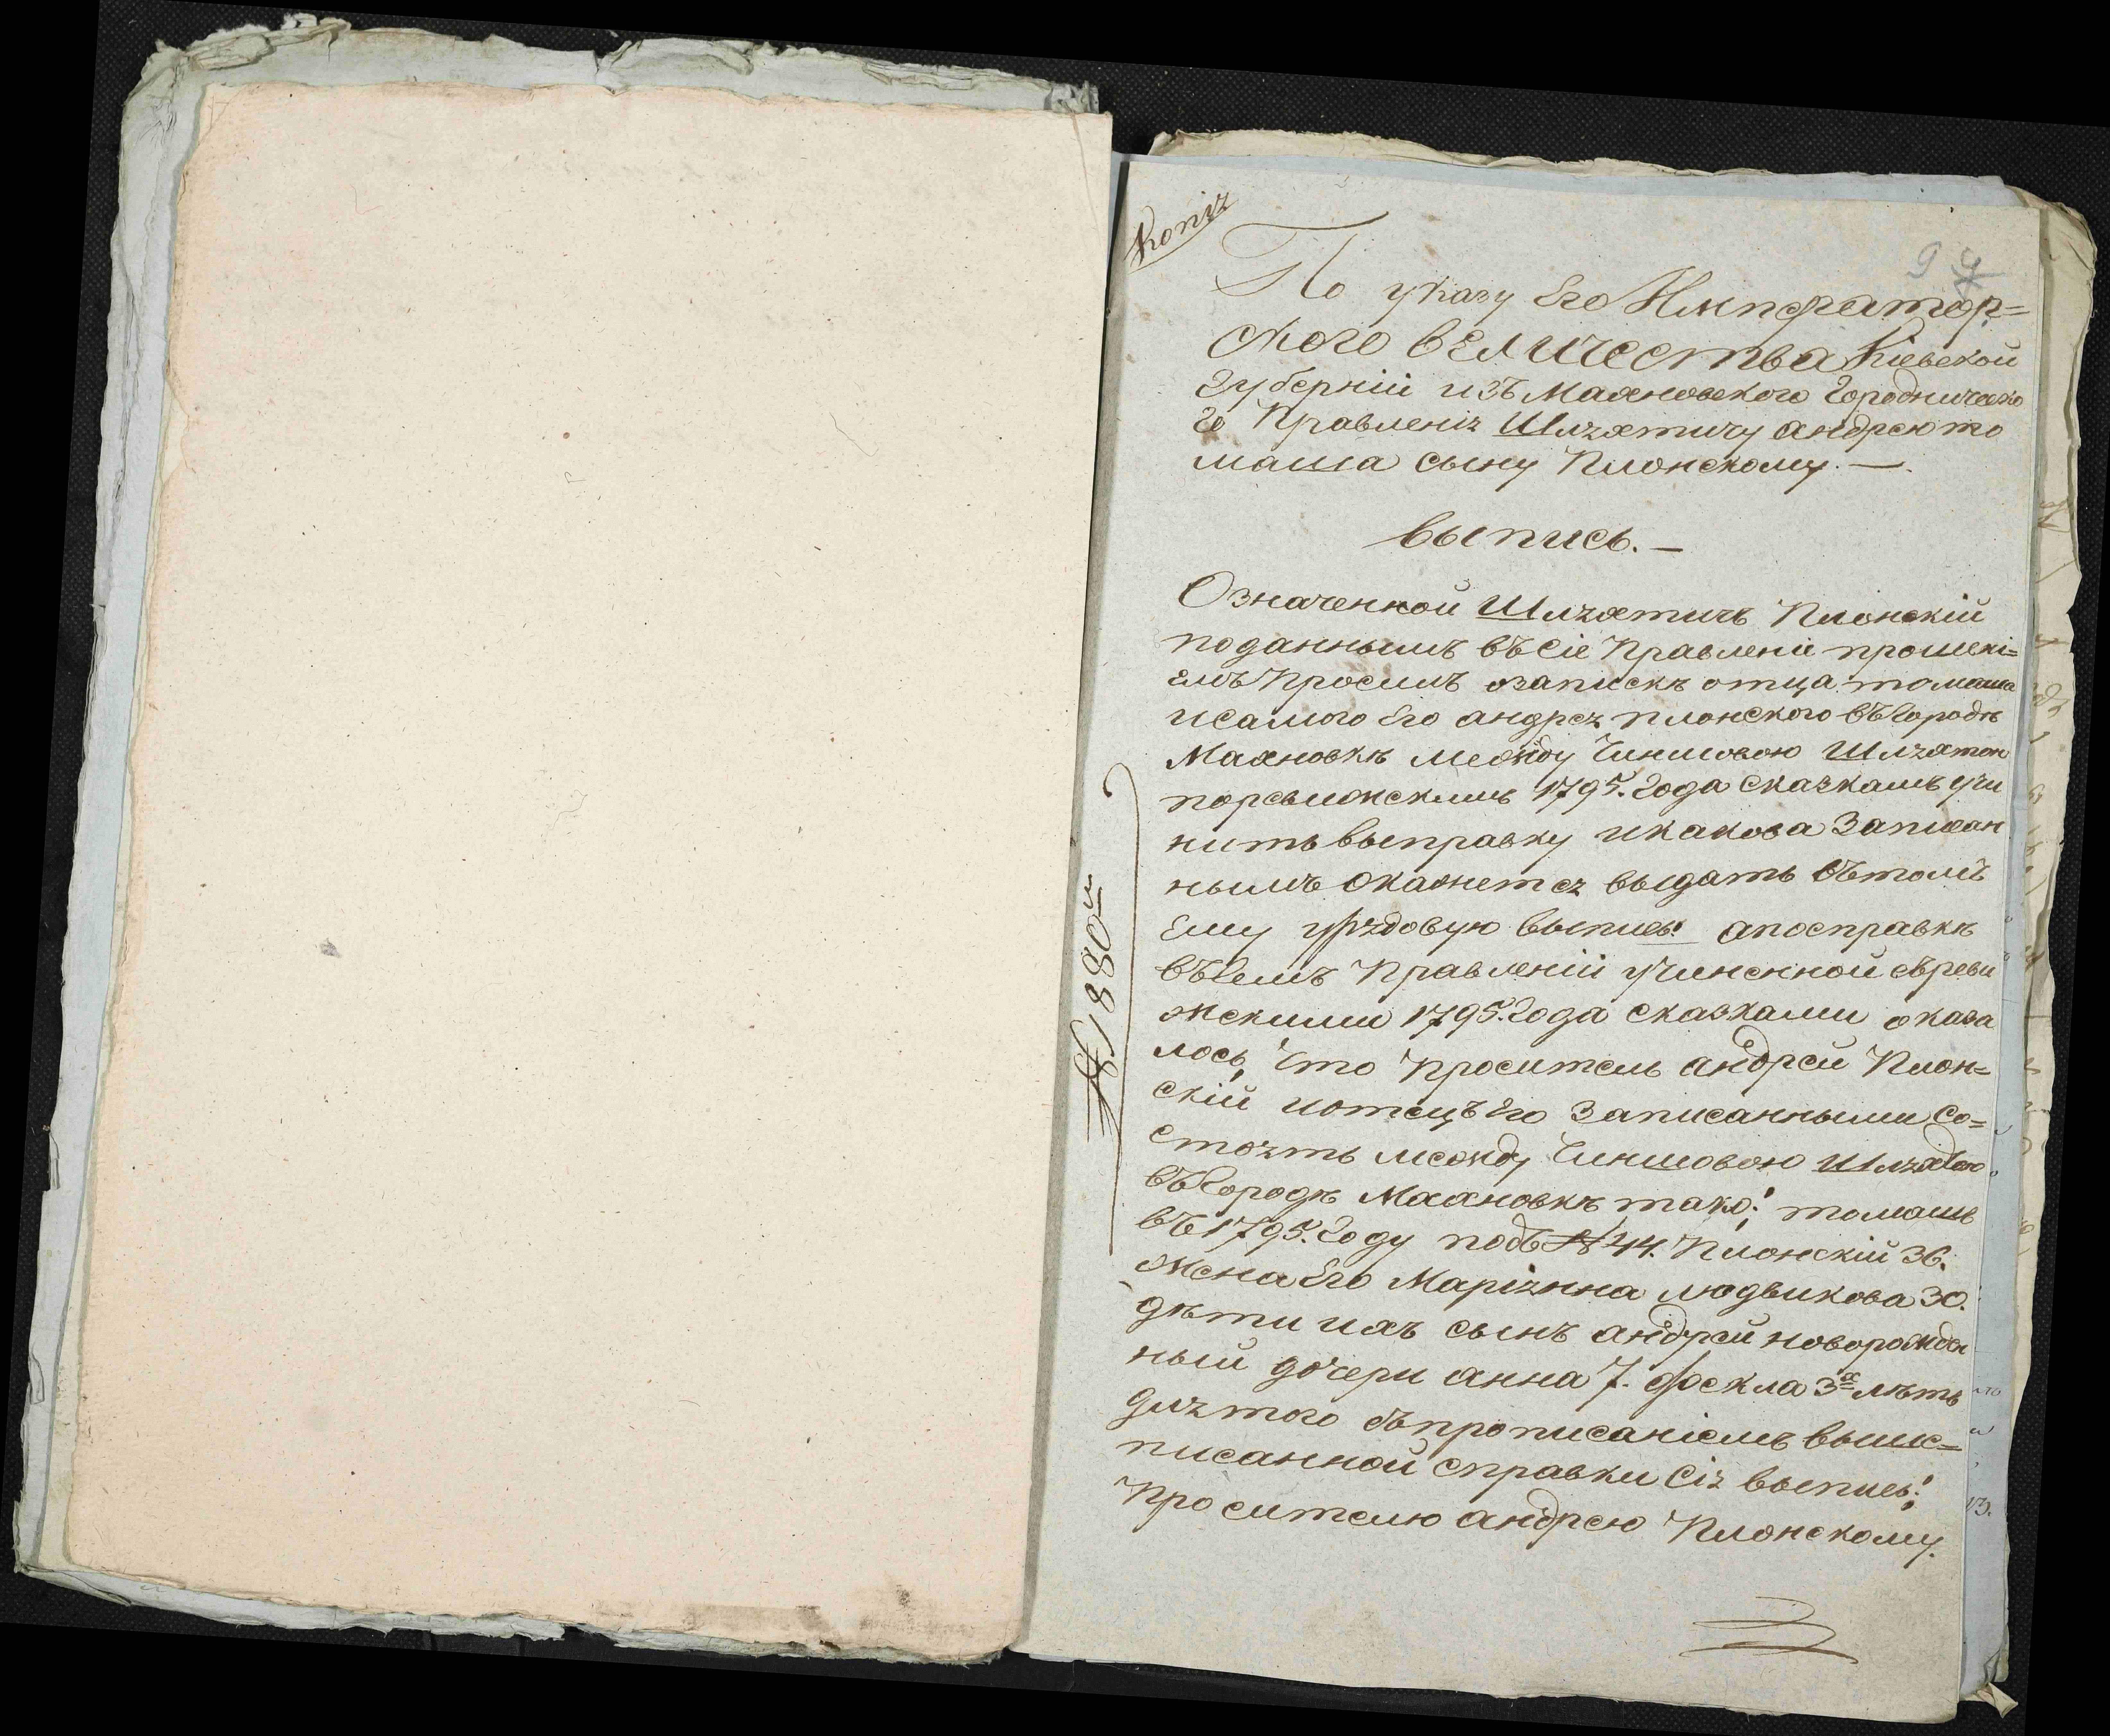 Копія
9
По указу Его Император=
ского величества Кіевской
Губерніи изъ Махновского Городническо
го Правленія Шляхтичу андрею то
маша сыну Плонскому. —.
выпись. —
Означенной Шляхтичъ Плонскій
поданнымъ въ сіе Правленіе прошені=
емъ просилъ озапискѣ отца томаша
исамого Его андрея плонского въ Городѣ
Махновкѣ между Чиншовою Шляхтою
поревижскимъ 1795. Года сказкамъ учи
нить выправку икакова Записан
нымъ окажется выдать отомъ
Ему урядовую выпись! апосправкѣ
въ семъ Правленіи учиненной съреви
жскими 1795. Года сказками оказа
лось, Что проситель андрей Плон=
скій иотецъ Его Записанными со=
стоятъ между Чиншовою Шляхтою
въ Городѣ Махновкѣ тако: томашъ
въ 1795. Году подъ № 44. Плонскій 36.
Жена Его Маріянна людвикова 30.
дѣти ихъ сынъ андрей новорожден
ный дочери анна 7. фекла 3х лѣтъ
для того съпрописаніемъ выше=
писанной справки Сія выпись!
Просителю андрею Плонскому.
№ 1880й